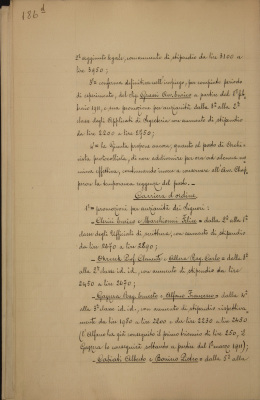 186 d
2° aggiunto legale, con aumento di stipendio da lire 3100 a
lire 3450;
3° conferma definitiva nell'impiego, per compiuto periodo
di esperimento, del Sig. Enrico a partire dal 1°
1911, e sua promozione per anzianità dalla 3ª alla 2ª
classe degli Applicati di Segreteria con aumento di stipendio
da lire 2200 a lire 2450;
4° la Giunta propone ancora, quanto al posto di Archi-
vista protocollista, di non addivenire per ora ad alcuna no-
mina effettiva, continuando invece a conservare all'
pino la temporanea reggenza del posto.
Carriera d'ordine
1° promozioni per anzianità dei Signori:
Enrico e dalla 2ª alla 1ª
classe degli Ufficiali di scrittura, con aumento di stipendio
da lire 2670 a lire 2890;
e Carlo dalla 3ª alla
la 2ª classe id. id., con aumento di stipendio da lire
2450 a lire 2670;
Ernesto e Alfano Francesco dalla 4ª
alla 3ª classe id. id., con aumento di stipendio rispettiva-
mente da lire 1980 a lire 2200 e da lire 2230 a lire 2450
(l'Alfano ha già conseguito il primo biennio di lire 250, il
lo conseguirà soltanto a partire dal 1° marzo 1911);
Alfredo e Pietro dalla 5ª alla